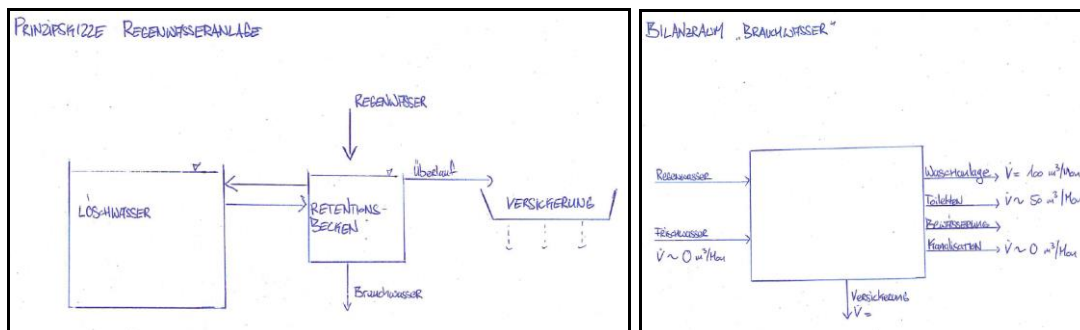 PRINZIPSKIZZE REGENWASSERANLAGE
REGENWASSER
Überlauf
LÖSCHWASSER
RETENTIONS-
BECKEN
VERSICKERUNG
Brauchwasser
BILANZRAUM „BRAUCHWASSER"
Regenwasser
Frischwasser
V̇ ~ 0 m³/Mon
Waschanlage V̇ = 100 m³/Mon
Toiletten V̇ ~ 50 m³/Mon
BEWÄSSERUNG
Kanalisation V̇ ~ 0 m³/Mon
Versickerung
V̇ =